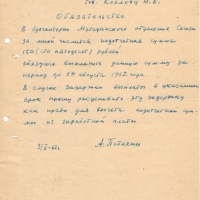 тов. Козлову И.В.
Обязательство
В бухгалтерии Магаданского отделения Союза
за мной числится подотчетная сумма
150 (сто пятьдесят) рублей
обязуюсь выплатить данную сумму за
период до 1го августа 1962 года.
В случае задержки выплаты в указанный
срок прошу рассматривать эту задержку
как право для вычета подотчетной сум-
мы из заработной платы.
А.